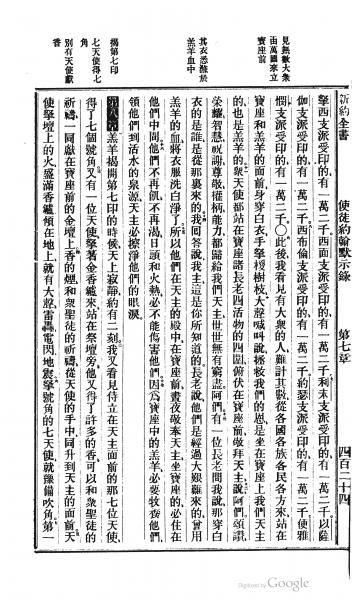 新約全書　使徒約翰默示錄　第七章　四百二十四
拏西支派受印的、有一萬二千、西面支派受印的、有一萬二千、利未支派受印的、有一萬二千、以薩
伽支派受印的、有一萬二千、西布倫支派受印的、有一萬二千、約瑟支派受印的、有一萬二千、便雅
憫支派受印的、有一萬二千、○此後我看見有大衆的人、難計其數、從各國各族各民各方來站在
見無數大衆
由萬國來立
寶座前
寶座和羔羊的面前、身穿白衣、手拏椶樹枝、大聲喊叫說、拯救我們的恩、是坐在寶座上我們天主
的、也是羔羊的、衆天使都站在寶座諸長老四活物的四圍、俯伏在寶座前、敬拜天主、說、阿們、頌讚
榮耀、智慧、祝謝、尊敬、權柄、能力、都歸給我們天主、世世無窮盡、阿們、有一位長老問我說、那穿白
衣的是誰、是從那裏來的、我回答說、我主、這是你所知道的、長老說、他們是經過大艱難來的、曾用
其衣悉滌於
羔羊血中
羔羊的血、將衣服洗白淨了、所以他們在天主的殿中、在寶座前、晝夜敬奉天主、坐寶座的必住在
他們中間、他們不再飢、不再渴、日頭和火熱、必不能傷害他們、因爲寶座中的羔羊、必要牧養他們、
領他們到活水的泉源、天主必擦淨他們的眼淚、
揭第七印
第八章 羔羊揭開第七印的時候、天上寂靜約有二刻、我又看見侍立在天主面前的那七位天使、
七天使得七
角
得了七個號角、又有一位天使、拏著金香爐、來站在祭壇旁、他又得了許多的香、可以和衆聖徒的
別有天使獻
香
祈禱、一同獻在寶座前的金壇上、香的煙、和衆聖徒的祈禱、從天使的手中、同升到天主的面前、天
使拏壇上的火、盛滿香爐、傾在地上、就有大聲雷轟電閃地震、拏號角的七天使、就豫備吹角、第一
Digitized by Google